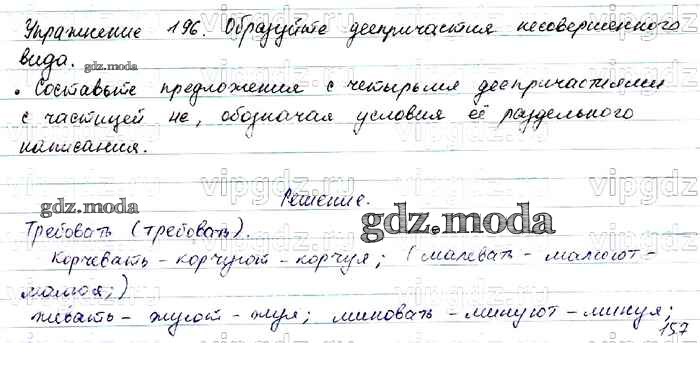 Упражнение 196. Образуйте деепричастия несовершенного
вида. gdz.moda
• Составьте предложения с четырьмя деепричастиями
с частицей не, обозначая условия её раздельного
написания.
Решение.
gdz.moda
gdz.moda
Требовать (требовать).
Корчевать – корчуют – корчуя; (малевать – малюют –
малюя;)
жевать – жуют – жуя; миновать – минуют – минуя;
157
vipgdz.ru vipgdz.ru vipgdz.ru vipgdz.ru